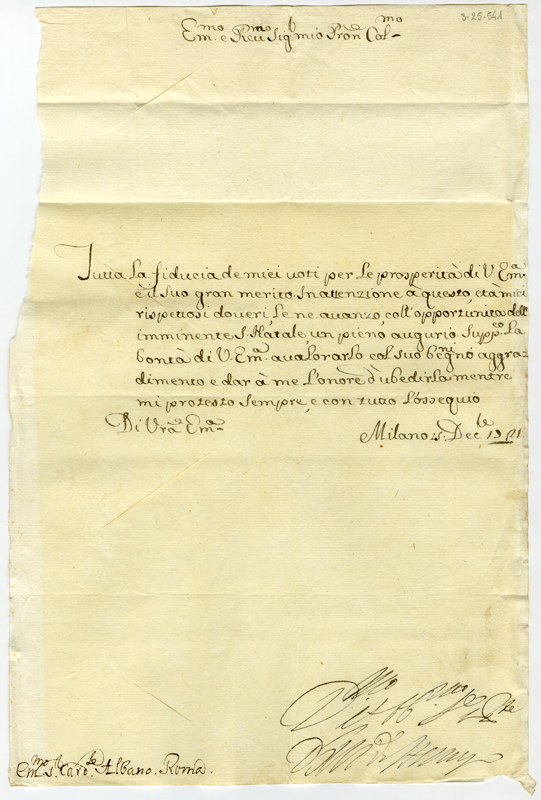 3-25-541
Em.mo e Rev.mo Sig.r mio Pron Col.mo
Tutta la fiducia de miei voti per le prosperità di V. Em.a
è il suo gran merito. In attenzione à questo, et à miei
rispettosi doveri le ne avanzo coll'opportunità dell'
imminente S. Natale, un pieno augurio. Supp.co la
bontà di V. Em.a avalorarlo col suo begni.no aggra-
dimento e dar à me l'onore d'ubedirla mentre
mi protesto sempre, e con tutto l'ossequio
Di Vra Em.a
Milano Dec.bre
Em.mo S. Card.le Albano. Roma.